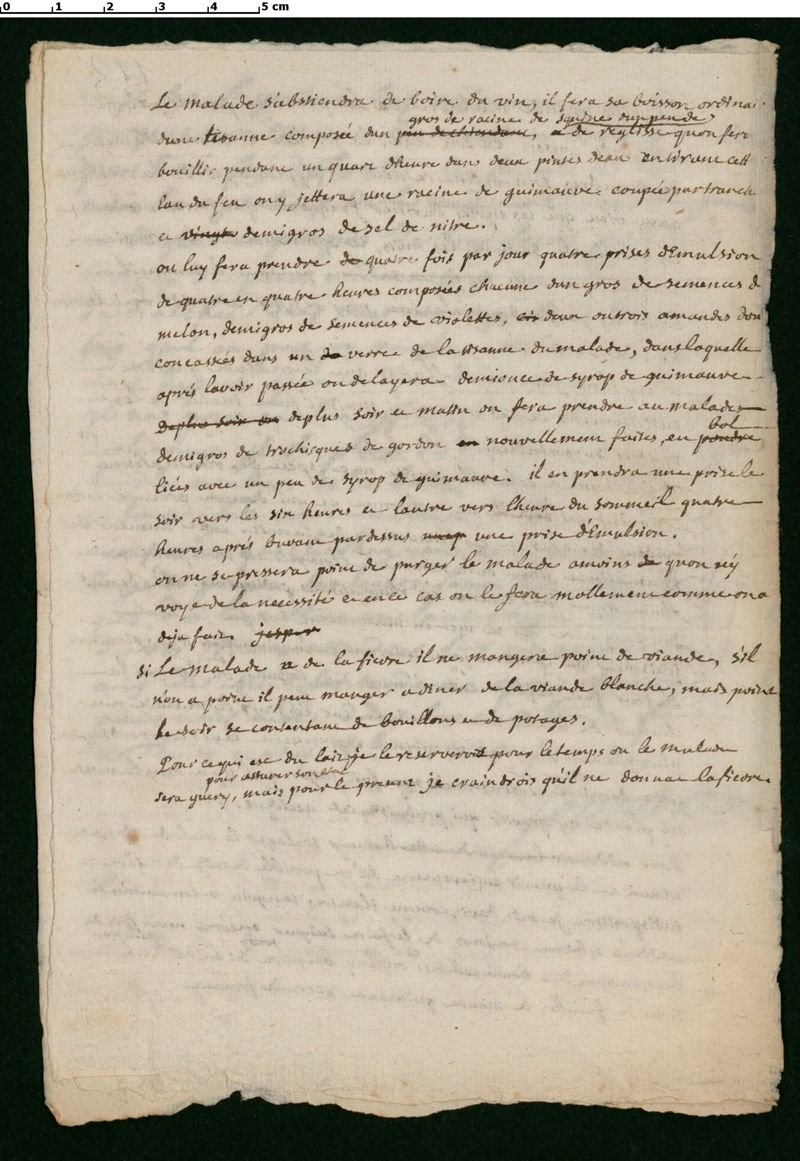 0 1 2 3 4 5 cm
Le malade s'abstiendra de boire du vin, il fera sa boisson ordinai
gros de racine de squine un peu de
d'une tisanne composée d'un peu de chiendent, et de reglisse qu'on fera
bouillir pendant un quart d'heure dans deux pintes d'eau en tirant cett
eau du feu on y jettera une racine de guimauve coupée par tranch
et vingts demigros de sel de nitre.
on luy fera prendre de quatre fois par jour quatre prises d'Emulsion
de quatre en quatre heures composées chacune d'un gros de semences d
melon, demigros de semences de violettes, deux ou trois amandes dou
concassés dans un de verre de la tisanne du malade, dans laquelle
aprés l'avoir passée on delayera demionce de syrop de guimauve
De plus soir et de plus soir et matin on fera prendre au malade
bol
demigros de trochisques de gordon en nouvellement faites, en poudre
liées avec un peu de syrop de guimauve. il en prendra une prise le
soir vers les six heures et l'autre vers l'heure du sommeil quatre
heures aprés buvant par dessus une prise d'Emulsion.
on ne se pressera point de purger le malade a moins de qu'on n'éy
voye de la necessité et en ce cas on le fera mollement comme on a
deja fait.
si Le malade a de la fievre il ne mangera point de viande, s'il
n'en a point il peut manger a diner de la viande blanche, mais point
le soir se contentant de bouillons et de potages.
Pour ce qui est du lait je le reserverois pour le temps ou le malade
pour assurer son
sera guery, mais pour le present je craindrois qu'il ne donnat la fievre.